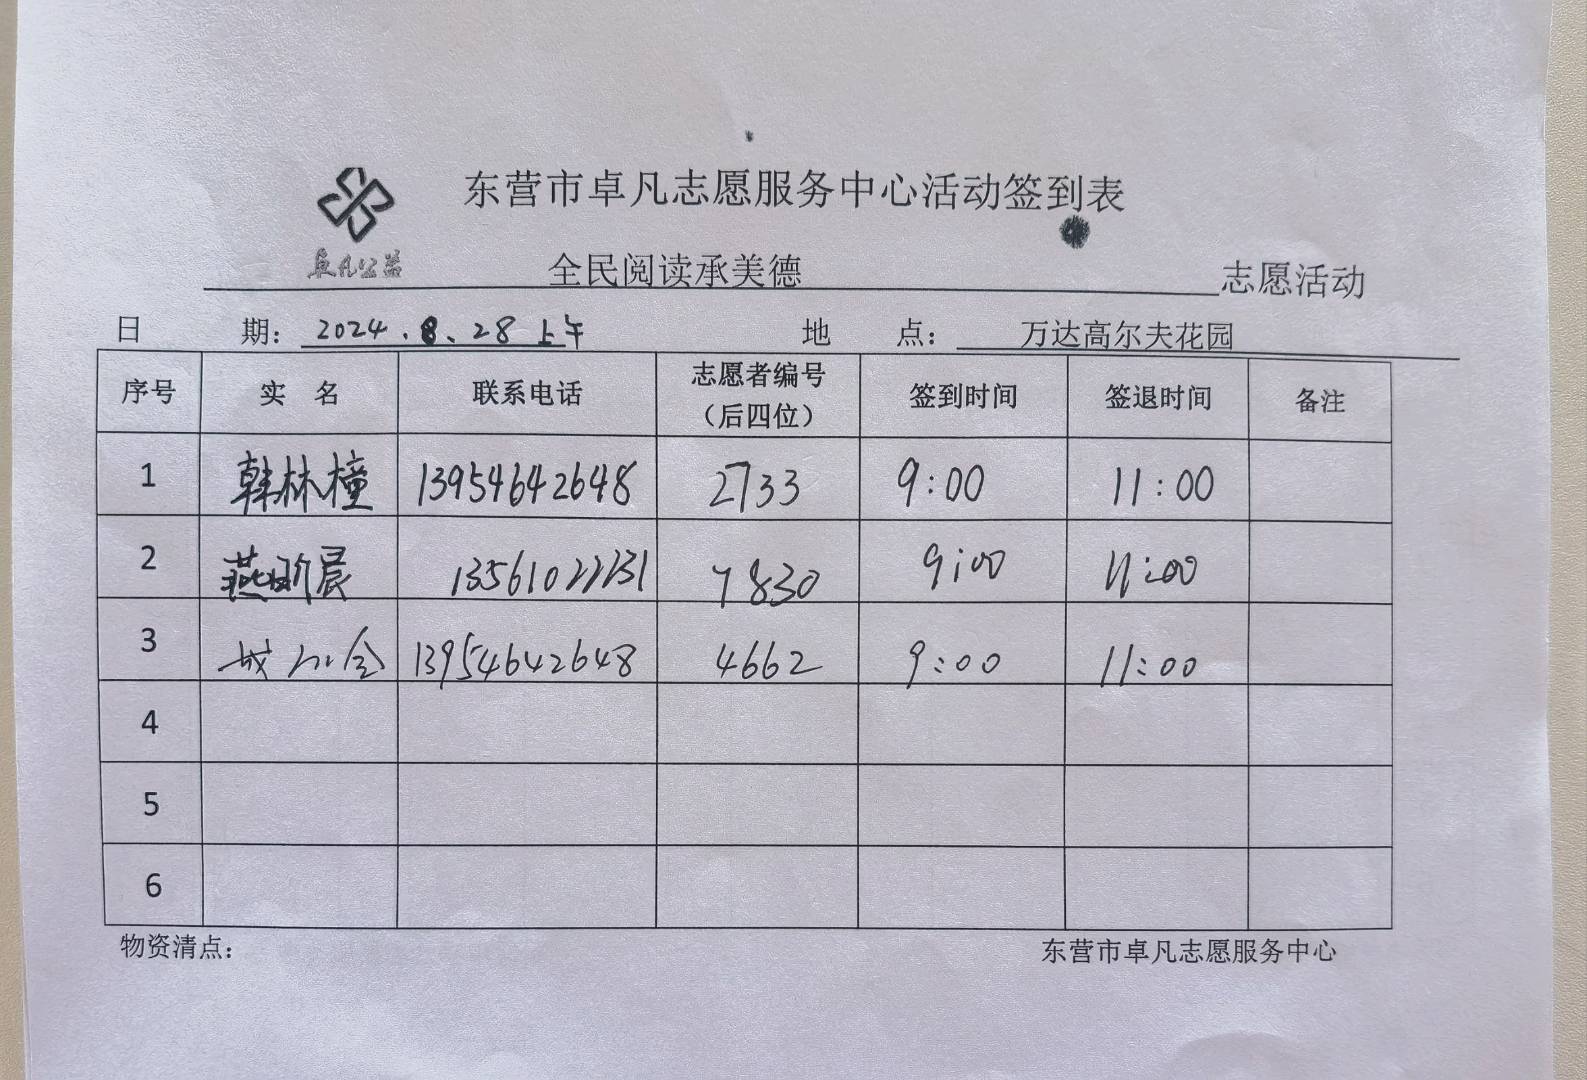 东营市卓凡志愿服务中心活动签到表
卓凡公益
全民阅读承美德 志愿活动
日 期: 2024.8、28上午 地 点: 万达高尔夫花园
序号 实 名 联系电话 志愿者编号（后四位） 签到时间 签退时间 备注
1 韩林橦 13954642648 2733 9:00 11:00
2 燕 晨 7830 9:00 11:00
3 13954642648 4662 9:00 11:00
4
5
6
物资清点: 东营市卓凡志愿服务中心